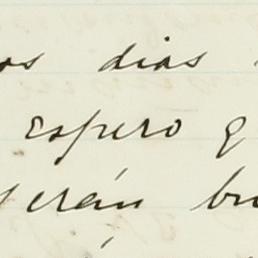 os dias
espero q
serán bu